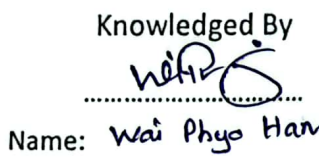 Knowledged By
Name: Wai Phyo Han